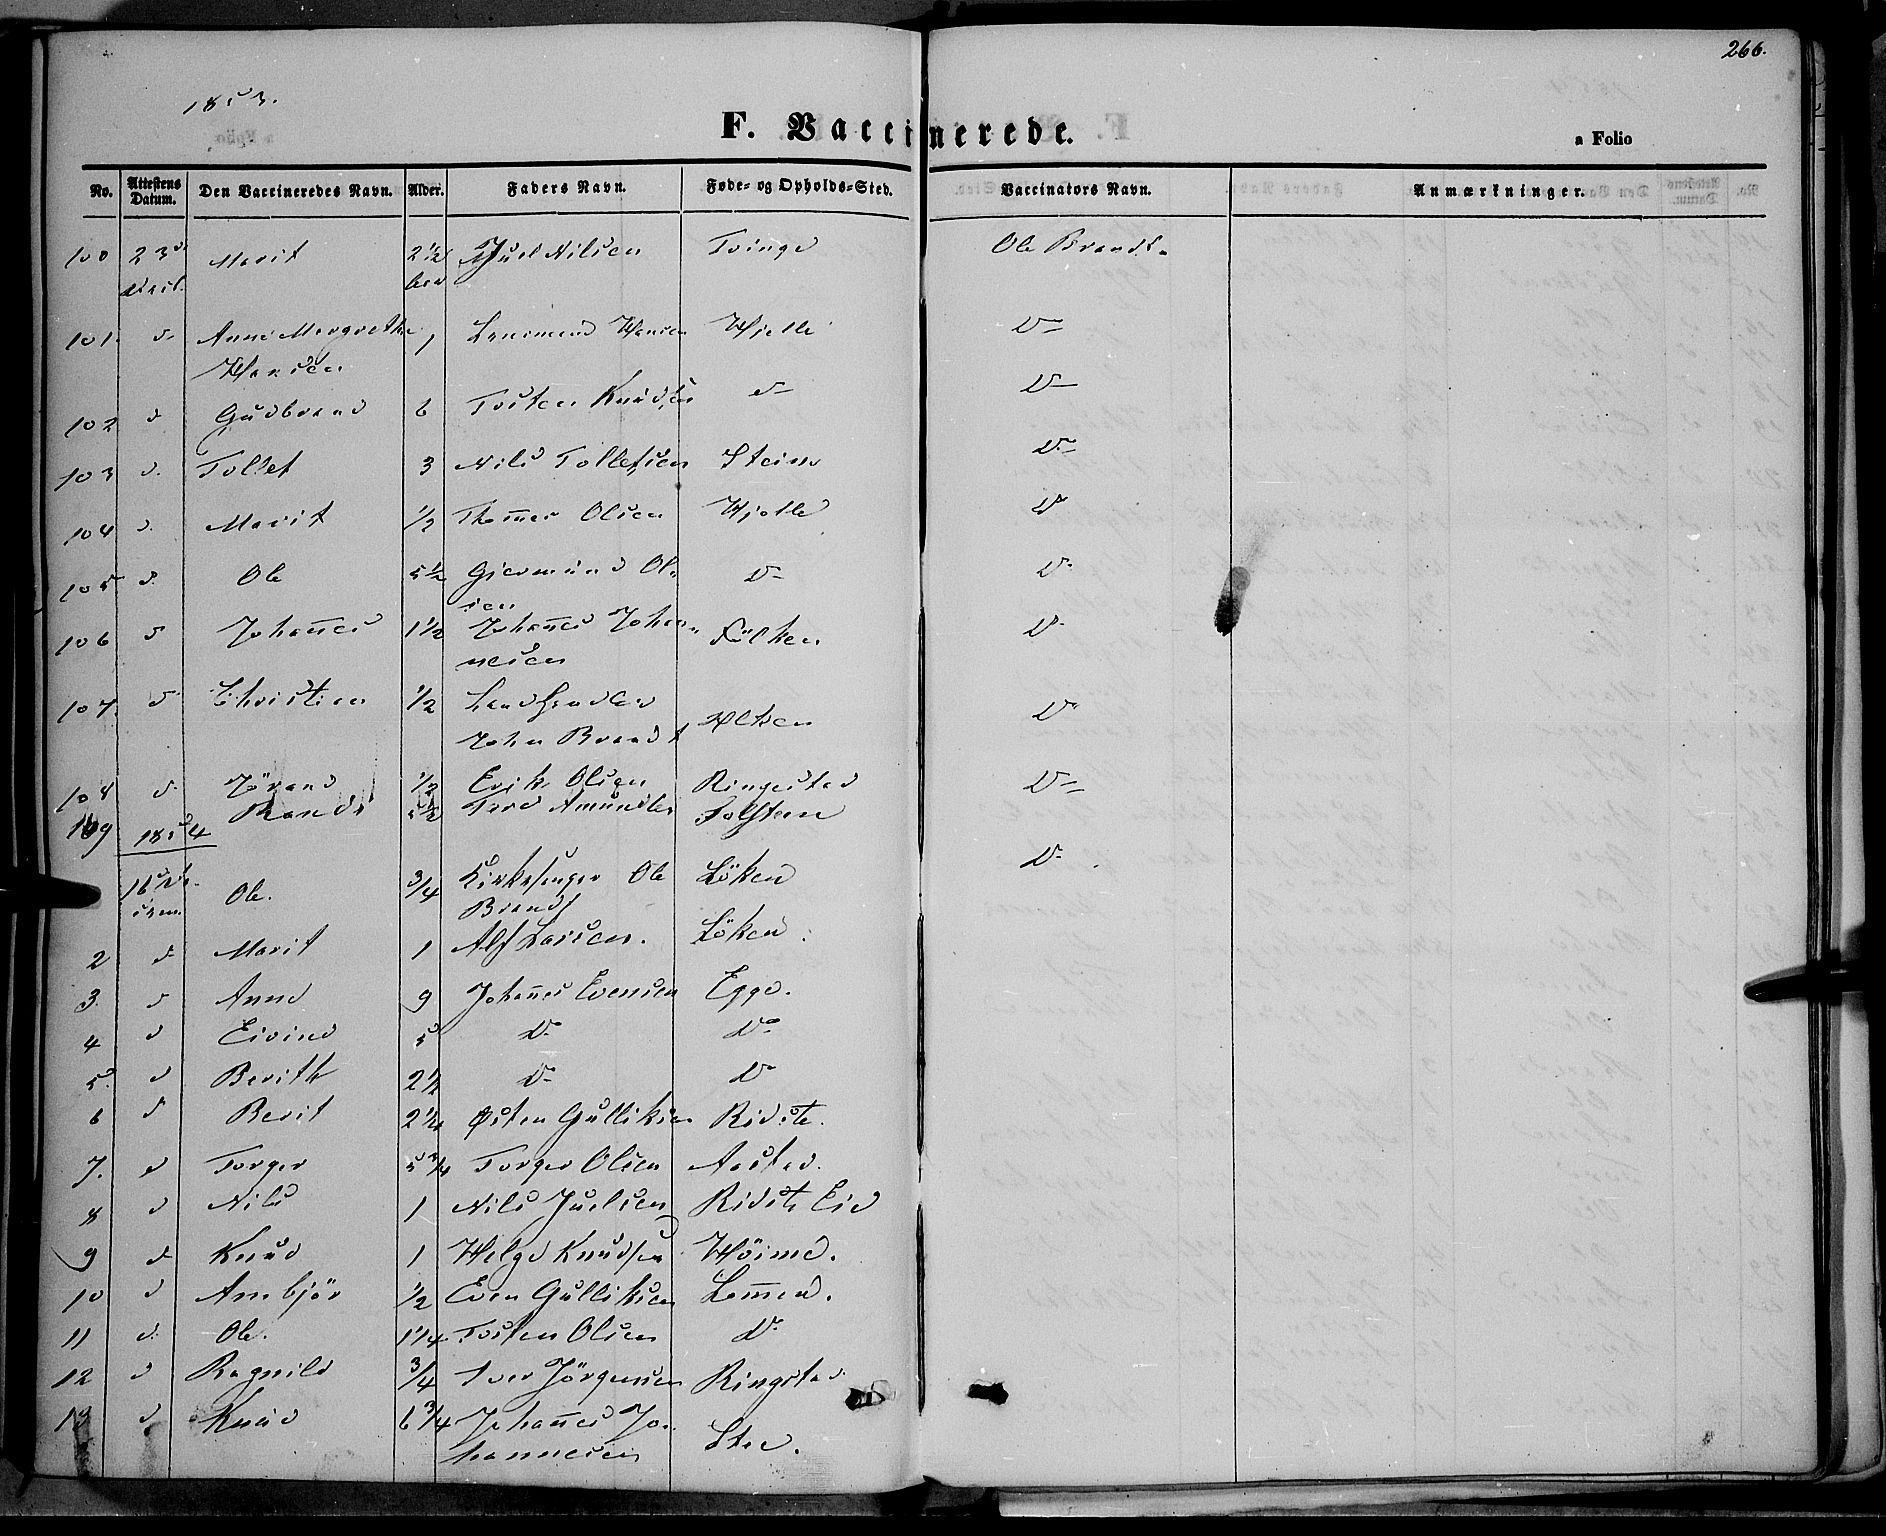 266.
1853.
F. Vaccinerede.
a Folio
No. Attestens Datum. Den Vaccineredes Navn. Alder. Faders Navn. Føde- og Opholds-Sted. Vaccinators Navn. Anmærkninger.
100 23 Marit 2 1/2 Juel Nilsen Tvinge Ole Brandt
101. d. Anne Margrethe 1 Hansen Hjelle D
Hansen
102 d Gudbrand 6 Tosten Knudsen d D
103 d. Tollef 3 Nils Tollefsen Steine D
104 d. Marit 1/2 Thomes Olsen Hjelle D
105 d. Ole 5 1/2 Giermund Ol- D D
sen
106 d Johannes 1 1/2 Johannes Johan- D
nesen
107. d Christian 1/2 Landhandler D
John Brandt
108 d. Jörand 1/2 Erik Olsen Ringestad D
109 Randi 5 1/2 Tord Amundsen
1854
16 Ole. 3/4 Kirkesanger Ole Löken D
Brandt
2 d Marit 1 Alf Larsen. Löken.
3. d Anne 9 Johannes Evensen Egge.
4 d Eivind 5 D D
5. d Berith 2 1/2 D D
6 d Berit 2 1/4 Østen Gulliksen Ridste.
7. d Torger 5 3/4 Torger Olsen Aastad.
8 d Nils 1 Nils Juelsen Ridste Eid
9 d Knud 1 Helge Knudsen Höime.
10 d Arnbjör 1/2 Even Gulliksen Lomen.
11 d. Ole. 1 1/4 Tosten Olsen D
12 d Ragnild 3/4 Iver Jörgensen Ringstad
13 d Knud 6 3/4 Johannes Jo-
hannesen Stee.